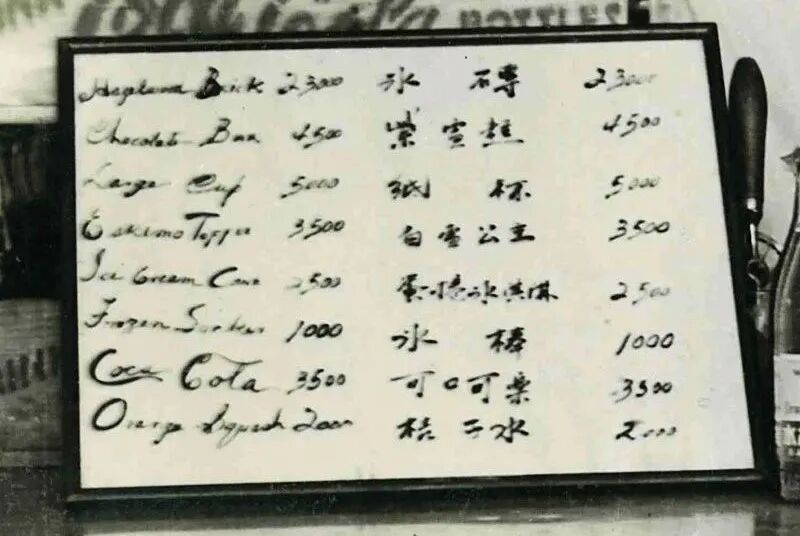 Coca-Cola
BOTTLES
Brick 23000 冰磚 23000
Chocolate Bar 4500 紫雪糕 4500
Large Cup 5000 紙杯 5000
Eskimo Topper 3500 白雪公主 3500
Ice Cream Cone 2500 蛋捲冰淇淋 2500
Frozen Sucker 1000 冰棒 1000
Coca Cola 3500 可口可樂 3500
Orange Squash 2000 桔子水 2000